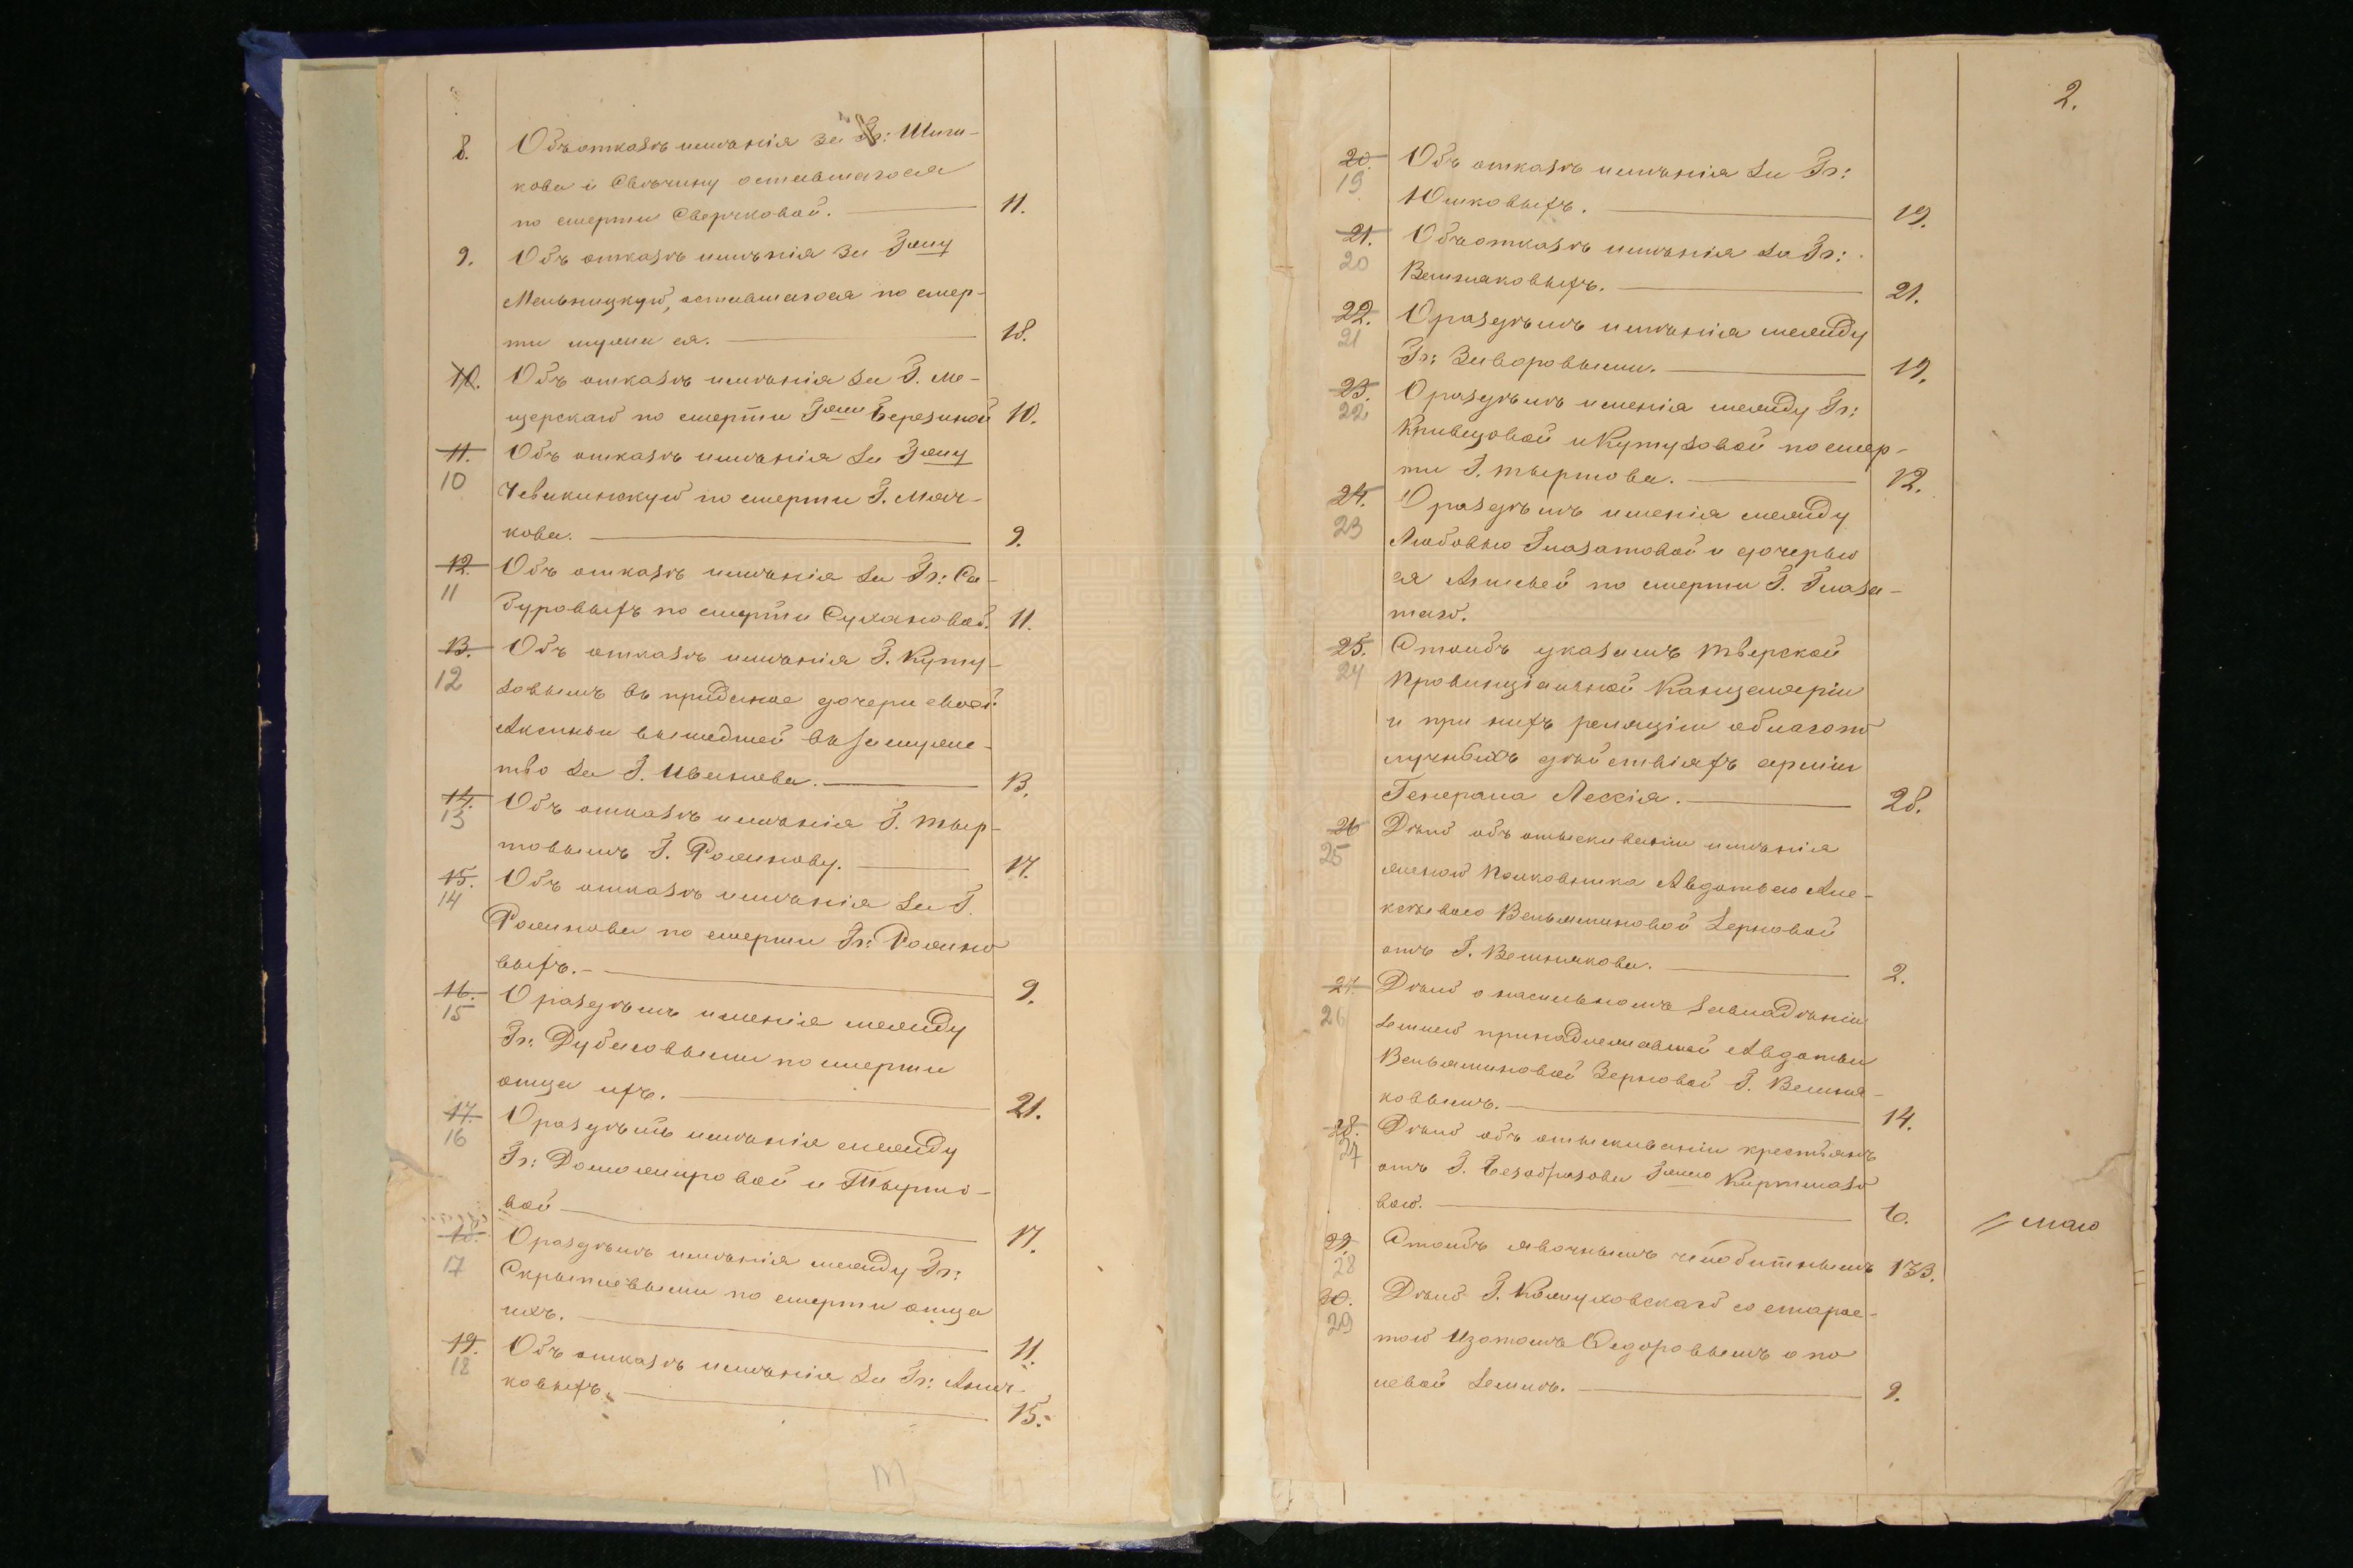 8. Объ отказѣ имѣнія за Гг: Шиш-
кова и Свѣчину оставшагося
по смерти Сверчковой. 11.
9. Объ отказѣ имѣнія за Гжу
Мельницкую, оставшагося по смер-
ти мужа ея. 18.
10. Объ отказѣ имѣнія за Г. Ме-
щерскаго по смерти Гжи Березиной 10.
11. Объ отказѣ имѣнія за Гжу
10
по смерти Г. Мяч-
кова. 9.
12. Объ отказѣ имѣнія за Гг: Са-
11
буровыхъ по смерти Сухановой. 11.
13. Объ отказѣ имѣнія Г. Куту-
12
зовымъ въ приданое дочери своей
Аксиньи вышедшей въ замуже-
тво за Г. Иванова. 13.
14. Объ отказѣ имѣнія Г. Тыр-
13
товымъ Г. Рожнову. 17.
15. Объ отказѣ имѣнія за Г.
14
Рожнова по смерти Гг: Рожно
выхъ. 9.
16. О раздѣлѣ именія между
15
Гг: Дубасовыми по смерти
отца ихъ. 21.
17. О раздѣлѣ имѣнія между
16
Гг: Доможировой и Тырто-
вой 17.
18. О раздѣлѣ имѣнія между Гг:
17
Скрыплевыми по смерти отца
ихъ. 11.
19. Объ отказѣ имѣнія за Гг: Аничь-
18
ковыхъ. 15.
2.
20. Объ отказѣ имѣнія за Гг:
19
Юшковыхъ. 19.
21. Объ отказѣ имѣнія за Гг:
20
Вешняковыхъ. 21.
22. О раздѣлѣ имѣнія между
21
Гг: Зиворовыми. 19.
23. О раздѣлѣ именія между Гг:
22
Кривцовой и Кутузовой по смер-
ти Г. Тыртова. 12.
24. О раздѣлѣ именія между
23
Любовью Глазатовой и дочерью
ея Анисьей по смерти Г. Глаза-
таго.
25. Столбъ указамъ Тверской
24
Провинціальной Канцеляріи
и при нихъ реляціи о благопо
лучныхъ дѣйствіяхъ арміи
Генерала Лессія. 28.
26 Дѣло объ отыскиваніи имѣнія
25
женою Полковника Авдотьею Але-
ксѣевою Вельяминовой Зерновой
отъ Г. Вешнякова. 2.
27. Дѣло о насильномъ завладѣніи
26
землею принадлежавшей Авдотьи
Вельяминовой Зерновой Г. Вешня-
ковымъ. 14.
28. Дѣло объ отыскиваніи крестьянъ
27
отъ Г. Безобразова Гжею Киртмазо
вою. 6. // мало
29. Столбъ явочнымъ челобитнымъ 133.
28
30. Дѣло Г. Кожуховскаго со старос-
29
тою Изотомъ Ѳедоровымъ о по
левой землѣ. 9.